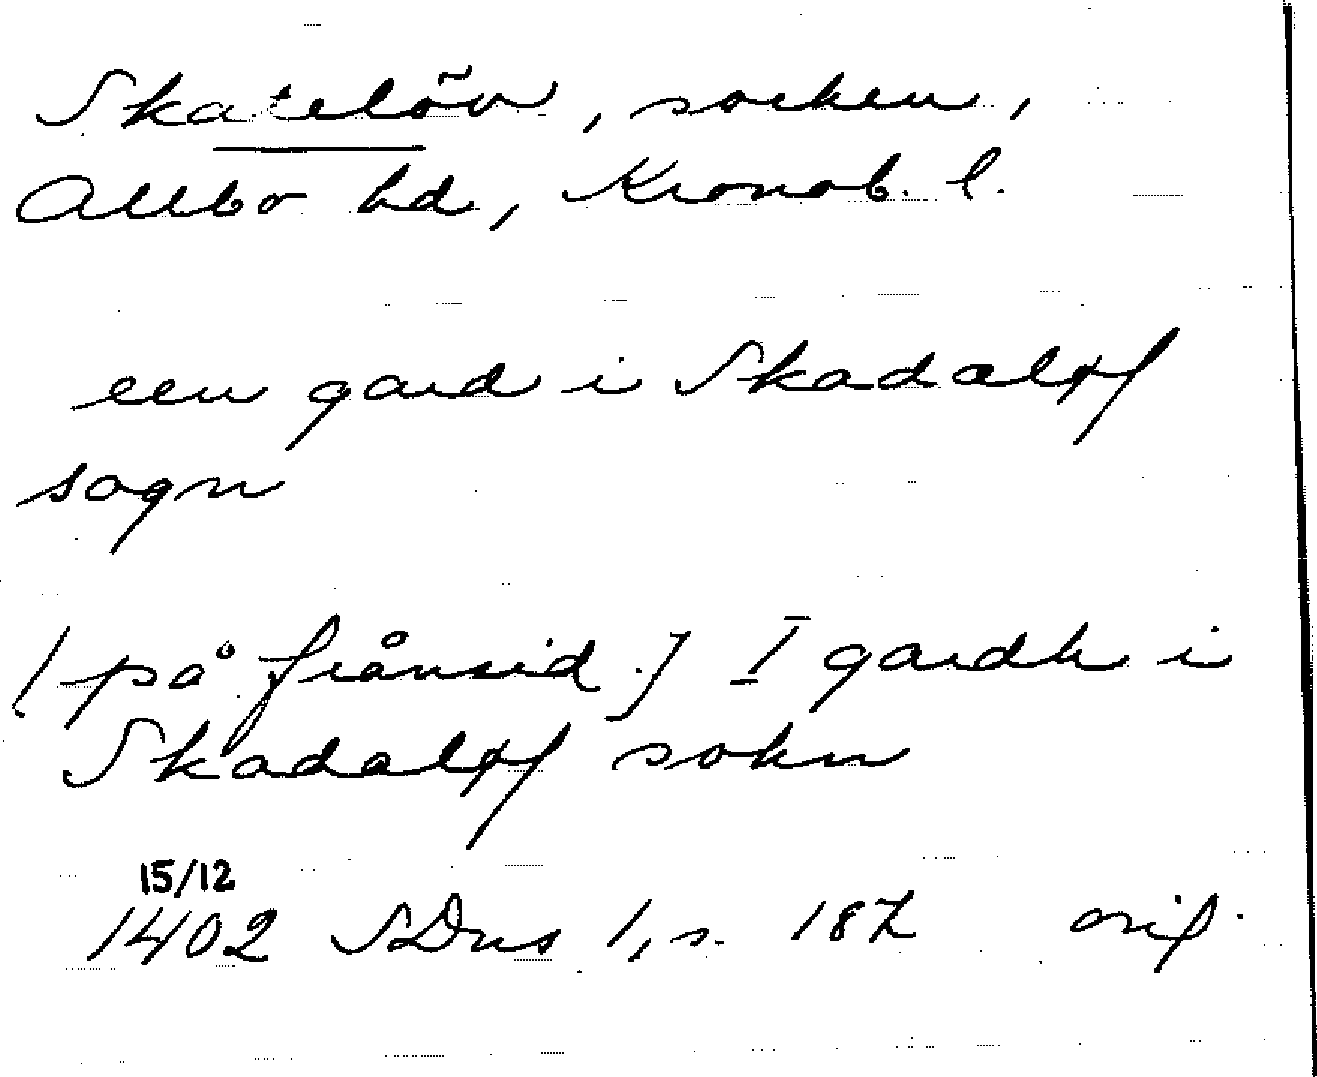 Skatelöv, socken,
Allbo hd, Kronob. l.
een gard i Skadæløf
sogn
[på frånsid.] I gardh i
Skadaløf sokn
15/12
1402 SDns 1, s. 187 orig.